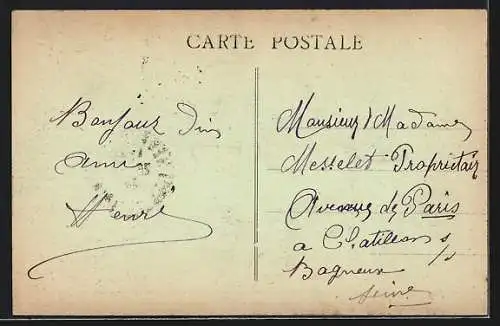 CARTE POSTALE
Bonjour d'un
ami
Henri
Monsieur Madame
Messelet Propriétair
Avenue de Paris
a Chatillon s/
Bagneux
Seine